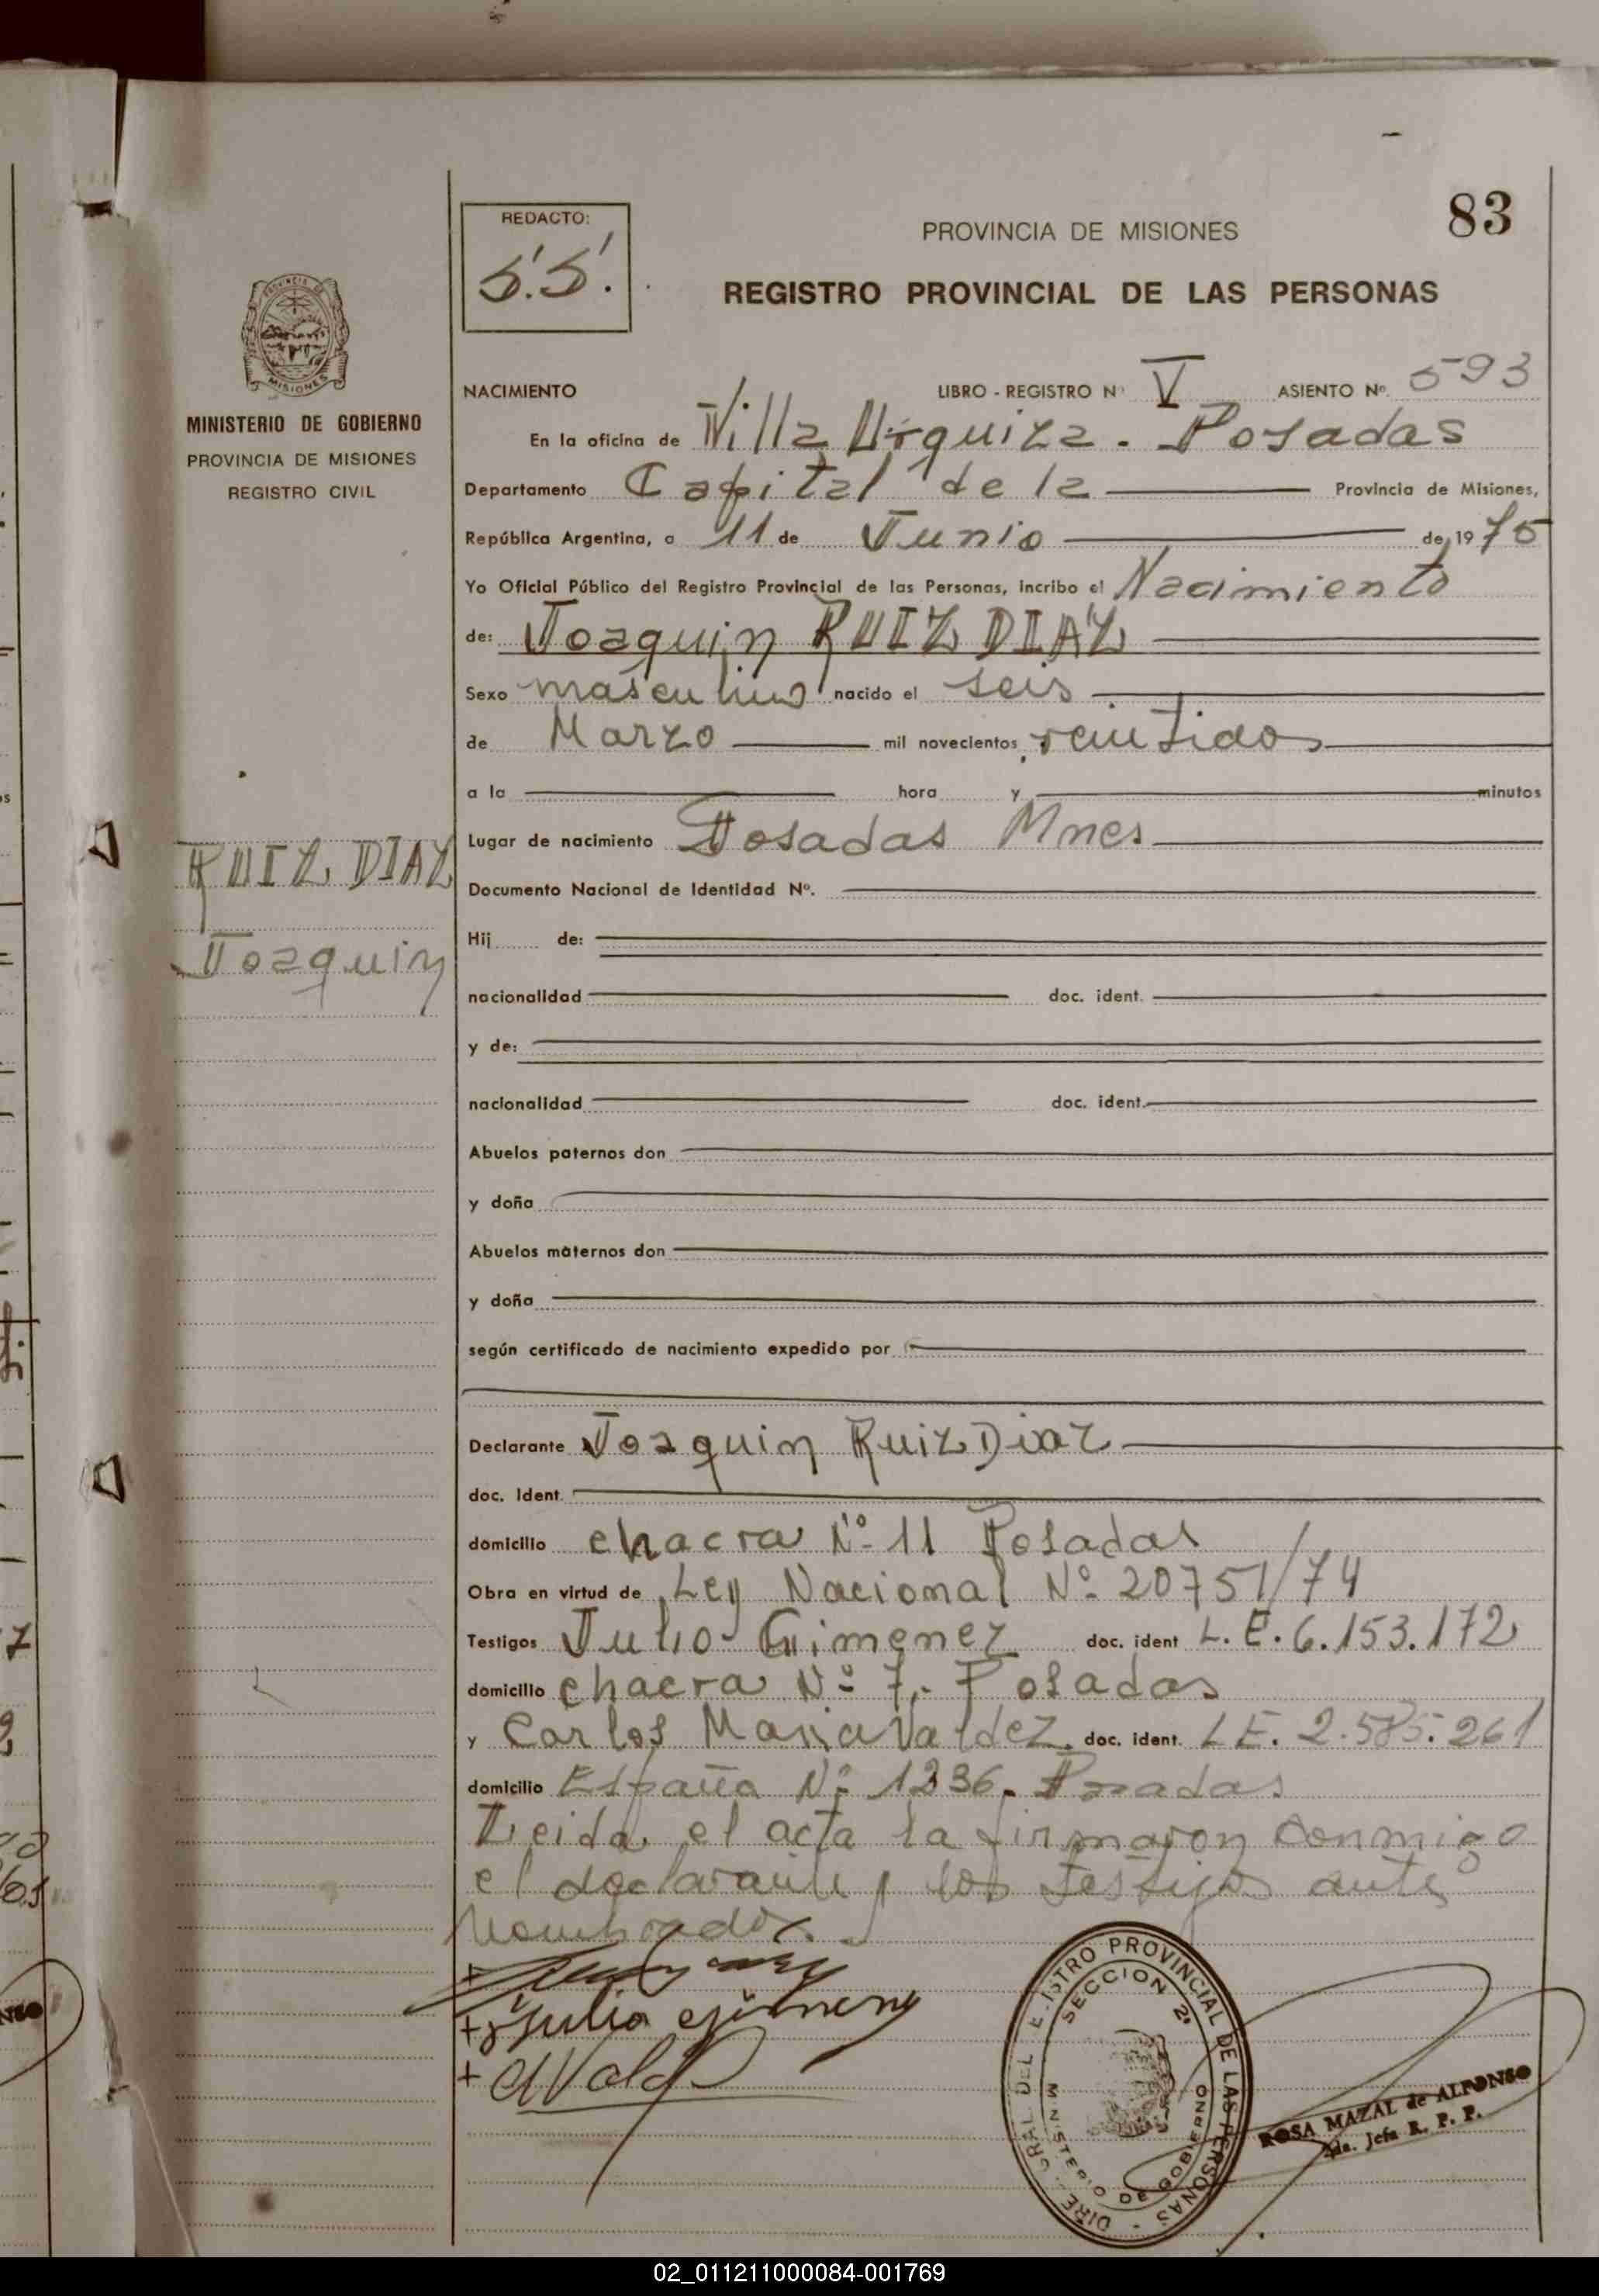 83
REDACTO:
S.S.
PROVINCIA DE MISIONES
REGISTRO PROVINCIAL DE LAS PERSONAS
MISIONES
MINISTERIO DE GOBIERNO
PROVINCIA DE MISIONES
REGISTRO CIVIL
RUIZ DIAZ
Joaquin
NACIMIENTO LIBRO - REGISTRO Nº V ASIENTO Nº 593
En la oficina de Villa Urquiza - Posadas
Departamento Capital de la Provincia de Misiones,
República Argentina, a 11 de Junio de 1975
Yo Oficial Público del Registro Provincial de las Personas, incribo el Nacimiento
de: Joaquin RUIZ DIAZ
Sexo masculino nacido el seis
de Marzo mil novecientos veintidos
a la hora y minutos
Lugar de nacimiento Posadas Mnes
Documento Nacional de Identidad Nº.
Hij de:
nacionalidad doc. ident.
y de:
nacionalidad doc. ident.
Abuelos paternos don
y doña
Abuelos maternos don
y doña
según certificado de nacimiento expedido por
Declarante Joaquin Ruiz Diaz
doc. Ident.
domicilio chacra Nº 11 Posadas
Obra en virtud de Ley Nacional Nº 20751/74
Testigos Julio Gimenez doc. ident L.E. 6.153.172
domicilio chacra Nº 7.- Posadas
y Carlos Maria Valdez doc. ident. L.E. 2.585.261
domicilio España Nº 1236. Posadas
Leida el acta la firmaron conmigo
el declarante y los testigos antes
nombrados.
+ Julio Gimenez
+
REGISTRO PROVINCIAL DE LAS PERSONAS
SECCION 2ª
MINISTERIO DE GOBIERNO
ROSA MAZAL de ALFONSO
Jefa R. P. P.
02_011211000084-001769